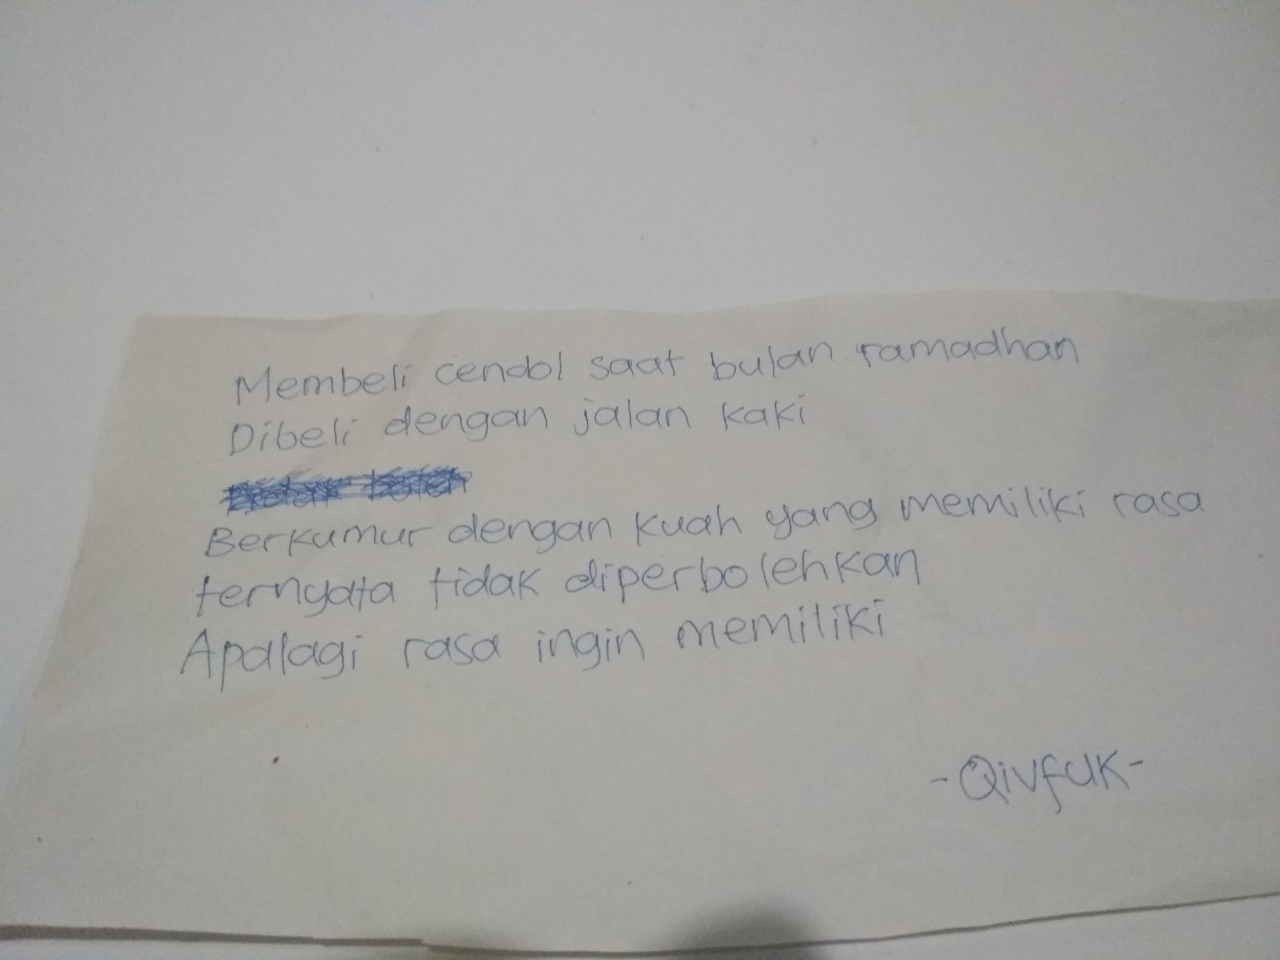 Membeli cendol saat bulan ramadhan
Dibeli dengan jalan kaki
Berkumur dengan kuah yang memiliki rasa
ternyata tidak diperbolehkan
Apalagi rasa ingin memiliki
-Qivfuk-